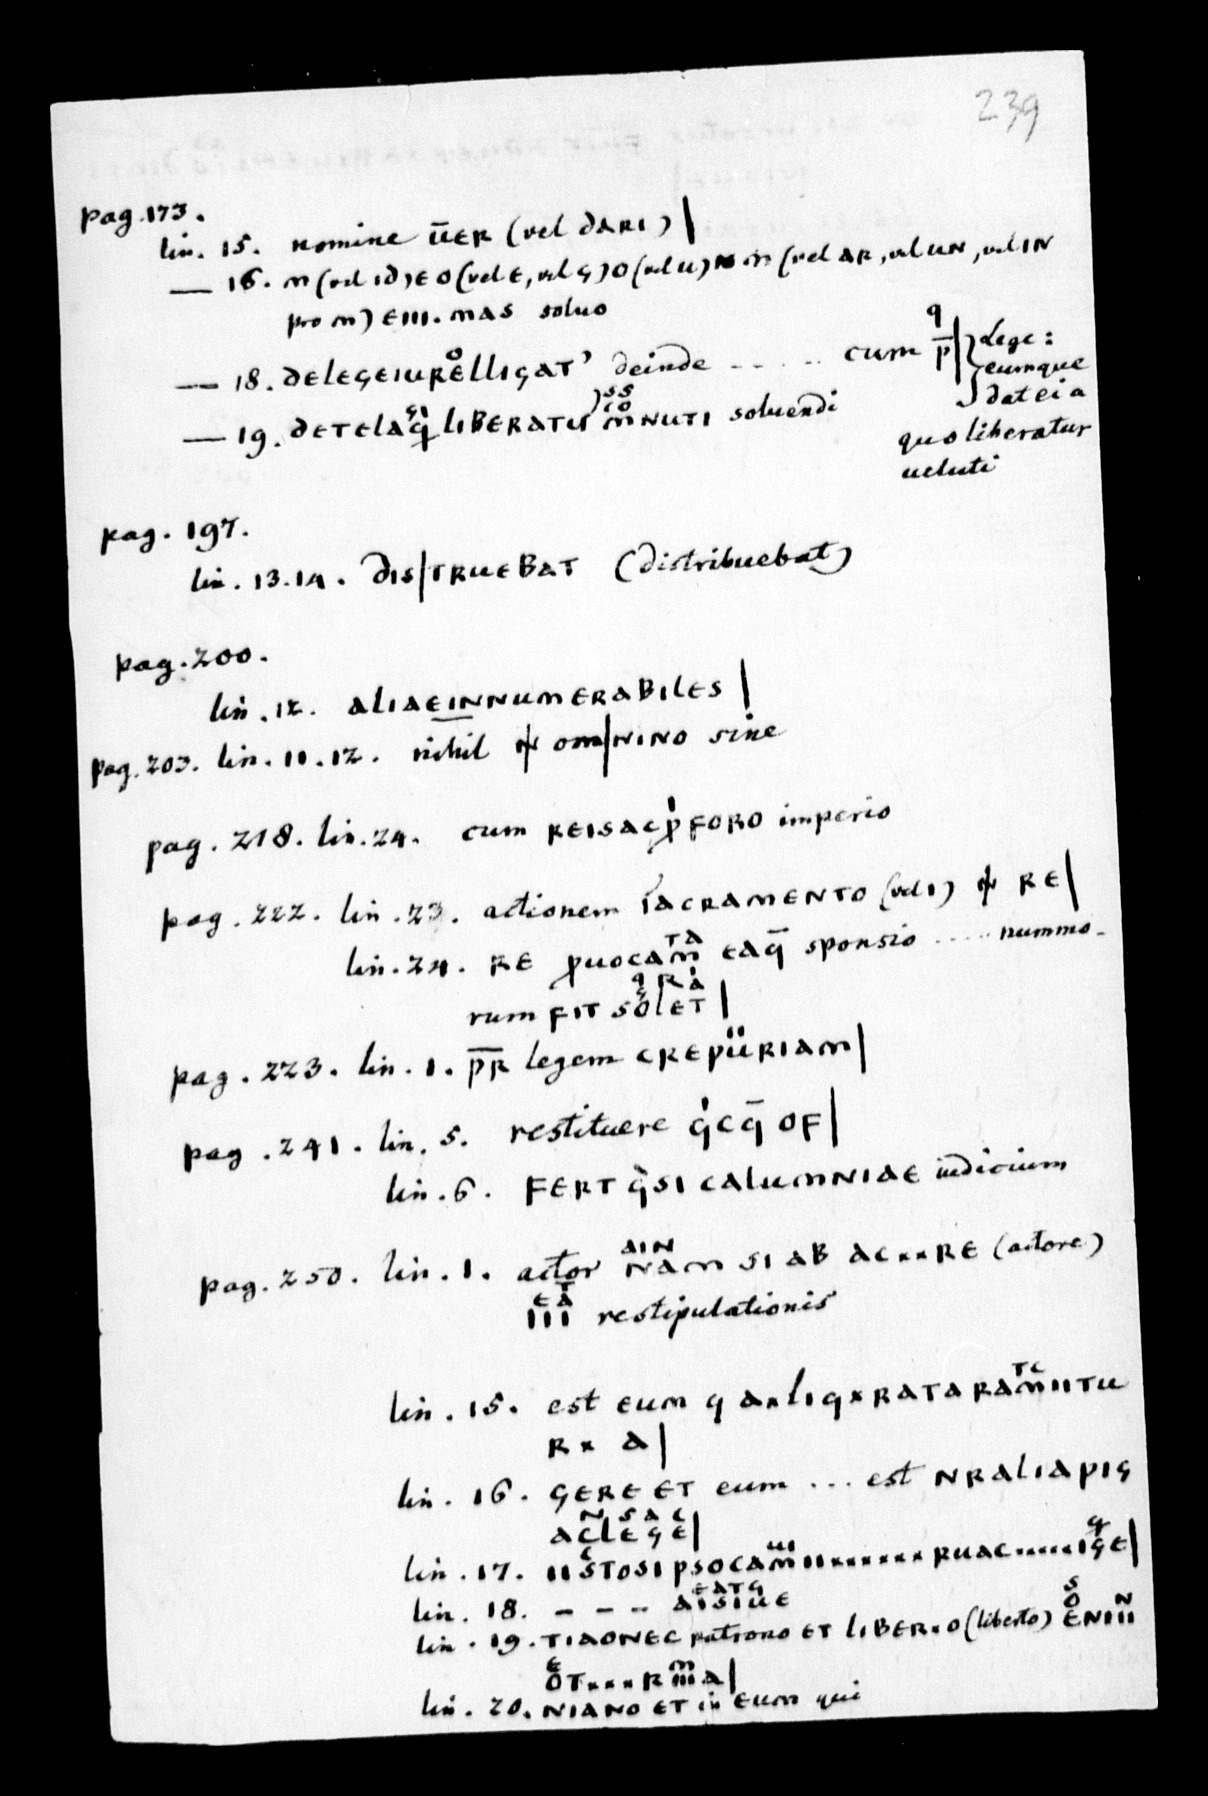 239
pag. 173.
lin. 15. nomine ūER (vel DARI) |
— 16. m (vel ID) E O (vel E, vel G) O (vel U) N m (vel AR, vel UN, vel IN
pro m) EIII. MAS soluo
— 18. DELEGEIURELLIGAT' deinde - - - . . cum p̄ | Lege:
eumque
— 19. DETELAq LIBERATU mNUTI soluendi
dat ei a
quo liberatur
ueluti
pag. 197.
lin. 13.14. DIS|TRUEBAT (distribuebat)
pag. 200.
lin. 12. ALIAEINNUMERABILES |
pag. 203. lin. 11.12. nihil om|NINO sine
pag. 218. lin. 24. cum REISACP FORO imperio
pag. 222. lin. 23. actionem SACRAMENTO (vel I) RE|
TA
lin. 24. RE PUOCAm EAq̄ sponsio ..... nummo-
q R A
rum FIT SOLET |
pag. 223. lin. 1. P̄R̄ legem CREPUÜRIAM|
pag. 241. lin. 5. restituere q C q̄ OF|
lin. 6. FERT q SI CALUMNIAE iudicium
AIN
pag. 250. lin. 1. actor NAM SI AB AC××RE (actore)
E T A
III restipulationis
TC
lin. 15. est EUM q A×LIq×RATARAmIITU
R× A|
lin. 16. GERE ET eum ... est NRALIAPIG
N S A C
ACLEGE|
lin. 17. IISTOSIPSOCAmII×××××××RUAC×××××IGE|
EATG
lin. 18. – – – AISIUE
lin. 19. TIAONEC patrono ET LIBER×O (liberto) ENIII
OT×××RIIIA|
lin. 20. NIANO ET in EUM qui